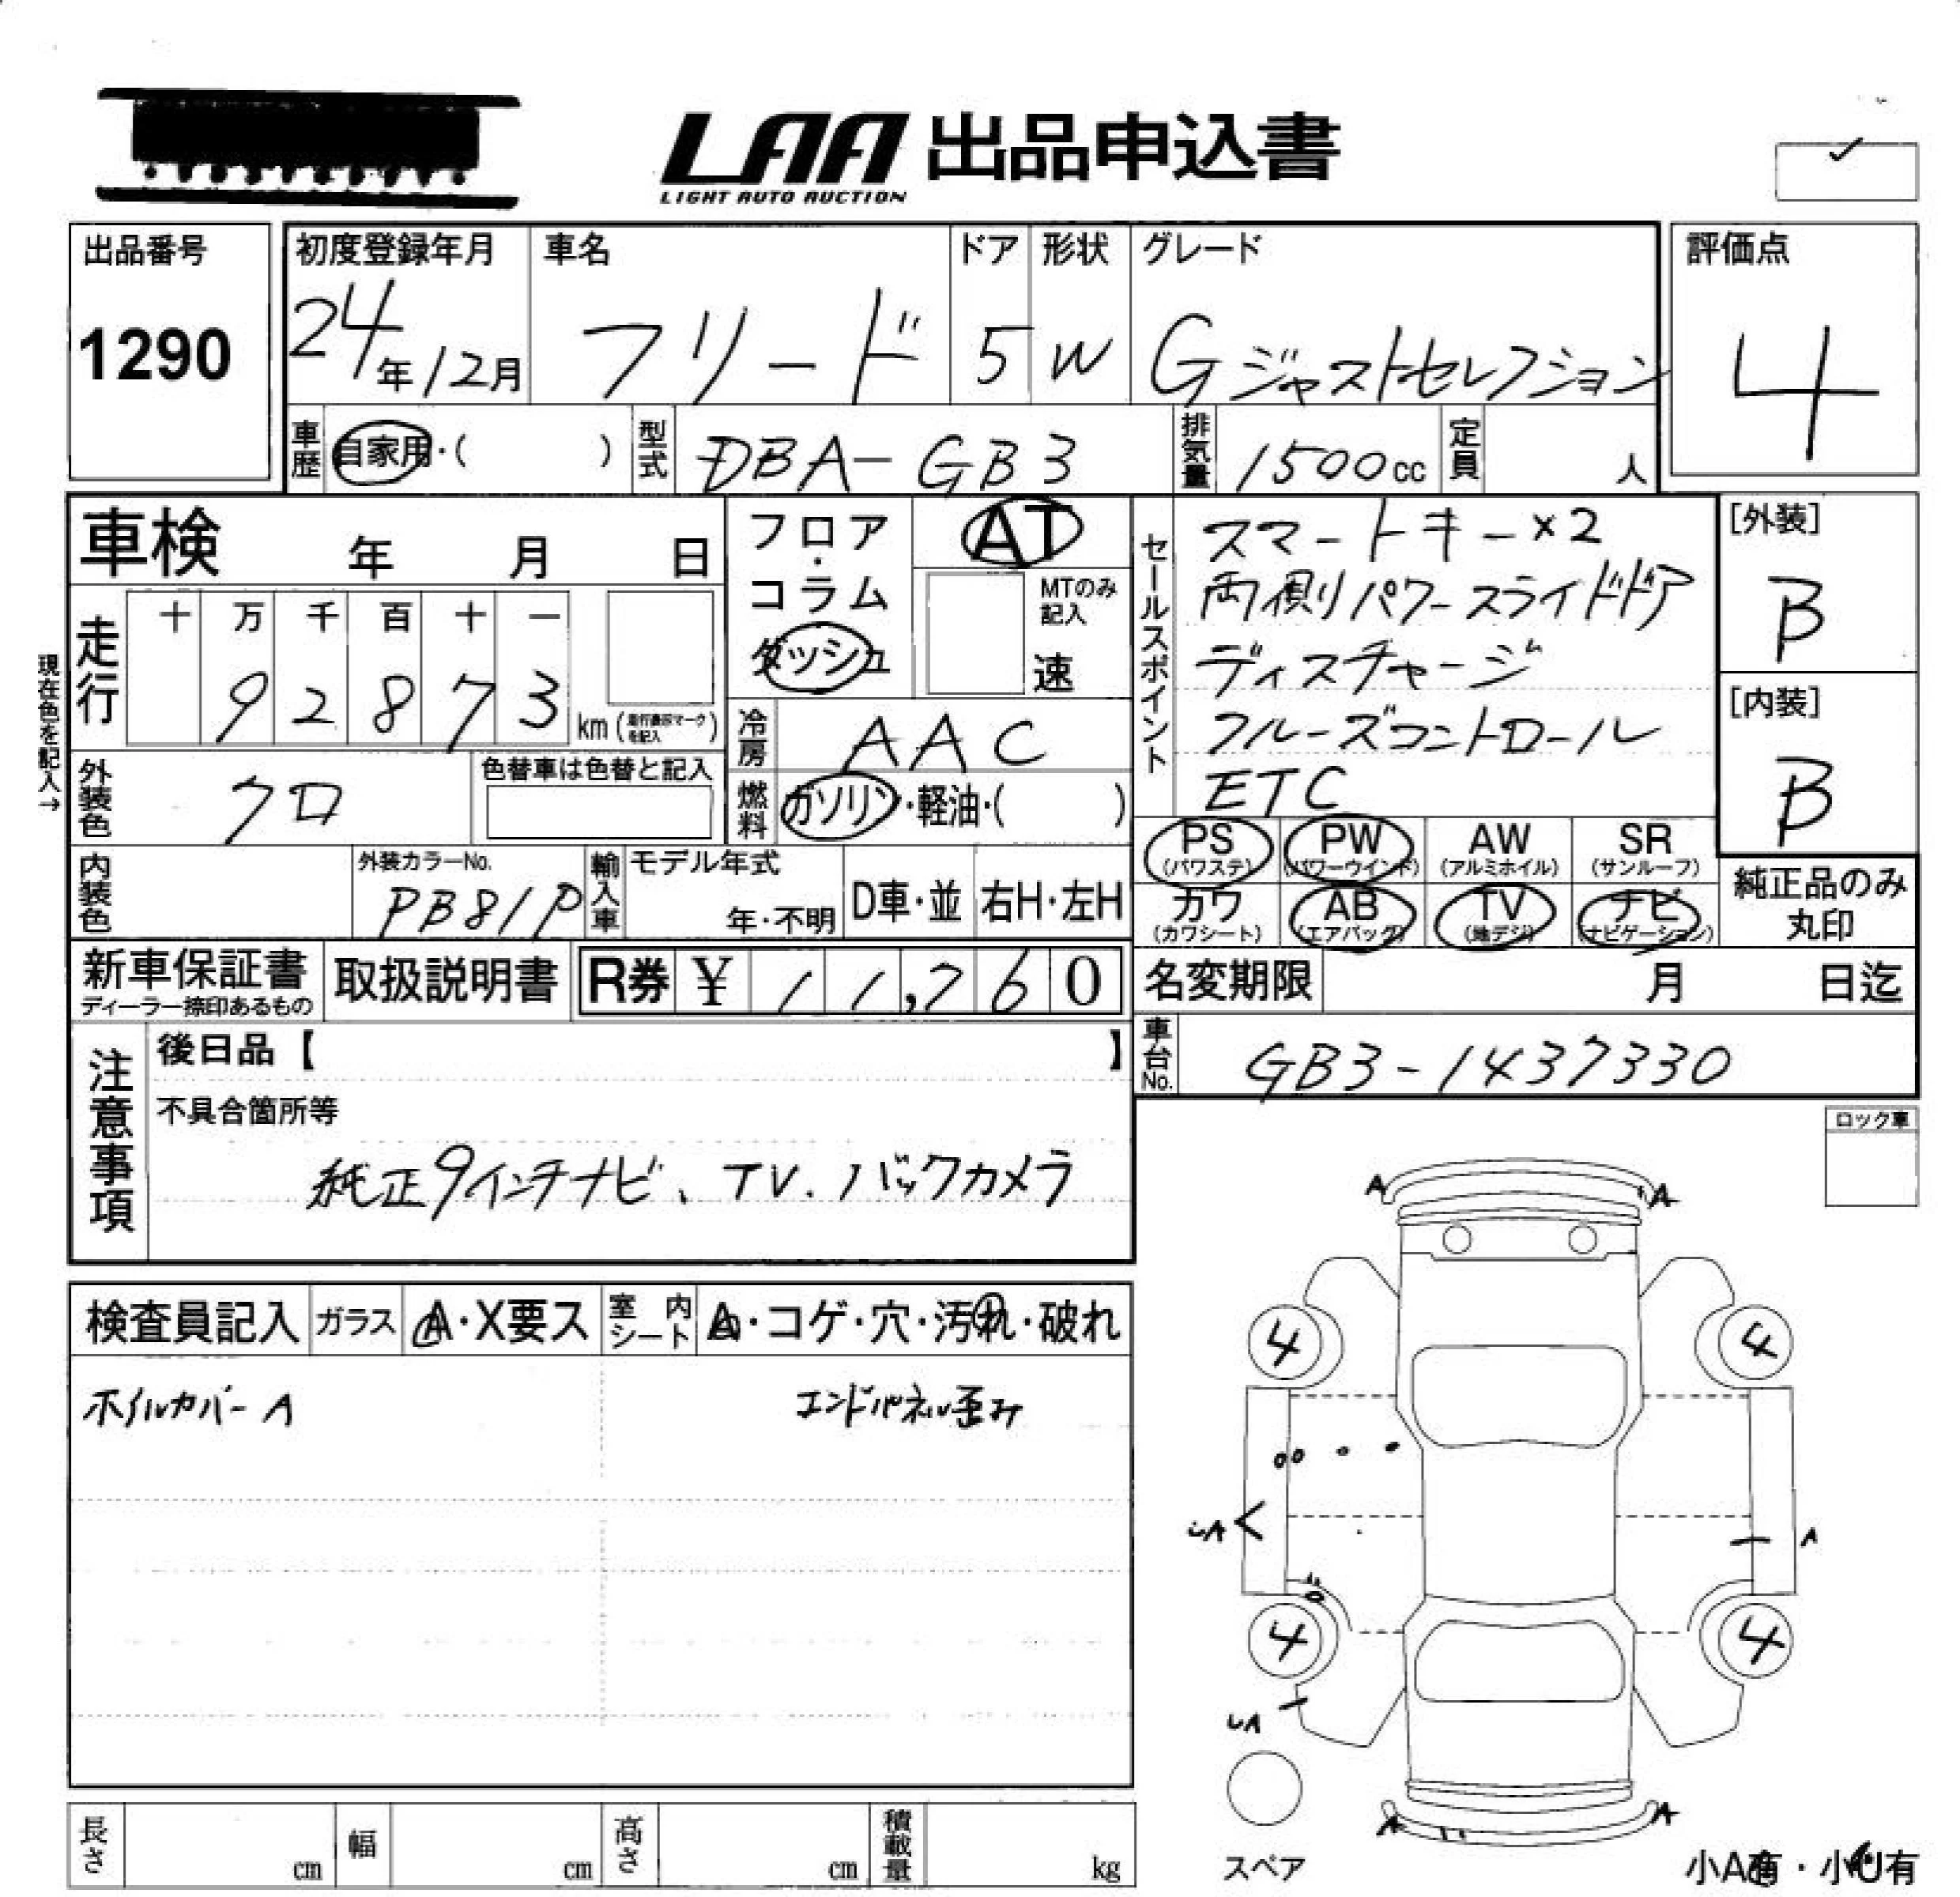 LAA 出品申込書
LIGHT AUTO AUCTION
出品番号
1290
初度登録年月
24年12月
車名
フリード
ドア
5
形状
W
グレード
Gジャストセレクション
評価点
4
車歴 自家用・( )
型式 DBA-GB3
排気量 1500cc
定員 人
車検 年 月 日
フロア・コラム
ダッシュ
AT
MTのみ記入
速
走行
十 万 千 百 十 一
9 2 8 7 3
km (走行表示マークを記入)
現在色を記入→
冷房 AAC
燃料 ガソリン・軽油・( )
外装色 クロ
色替車は色替と記入
内装色
外装カラーNo.
PB81P
輸入車
モデル年式
年・不明
D車・並
右H・左H
セールスポイント
スマートキー×2
両側パワースライドドア
ディスチャージ
クルーズコントロール
ETC
[外装]
B
[内装]
B
PS (パワステ)
PW (パワーウインド)
AW (アルミホイル)
SR (サンルーフ)
カワ (カワシート)
AB (エアバック)
TV (地デジ)
ナビ (ナビゲーション)
純正品のみ丸印
新車保証書
ディーラー捺印あるもの
取扱説明書
R券 ¥ 11,760
名変期限 月 日迄
車台No. GB3-1437330
注意事項
後日品【 】
不具合箇所等
純正9インチナビ、TV、バックカメラ
ロック車
検査員記入
ガラス A・X要ス
室内シート ・コゲ・穴・汚れ・破れ
ホイルカバーA
エンドパネル歪み
A A
4 4
A
A
4 4
A
A A
スペア
長さ cm
幅 cm
高さ cm
積載量 kg
小A有・小U有